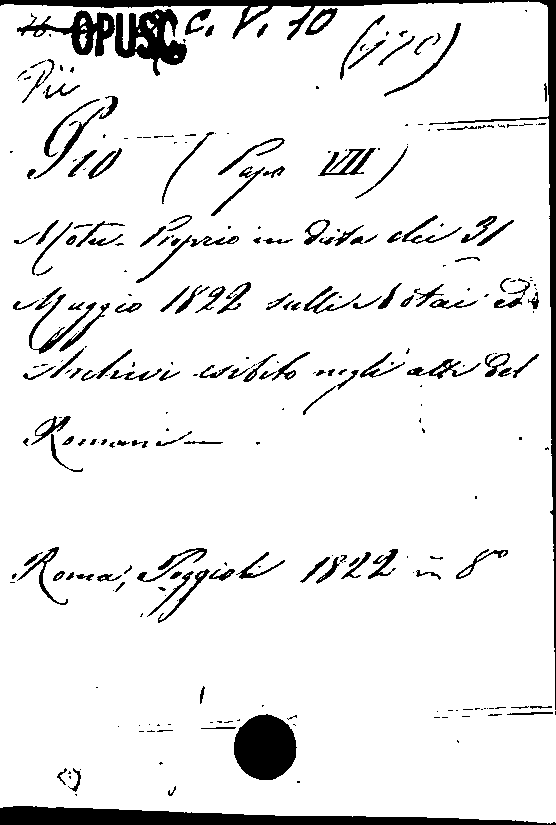 OPUSC. C. V. 10 (170)
Pii
Pio ( Papa VII )
Motu-Proprio in data dei 31
Maggio 1822 sulli Notai ed
Archivi esibito negli atti del
Romani —
Roma, Poggioli 1822 in 8º